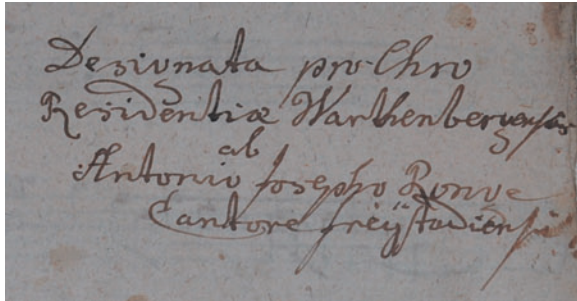 Designata pro Chro
Residentiæ Warthenbergensis
ab
Antonio Josepho
Cantore Freÿstadiensi